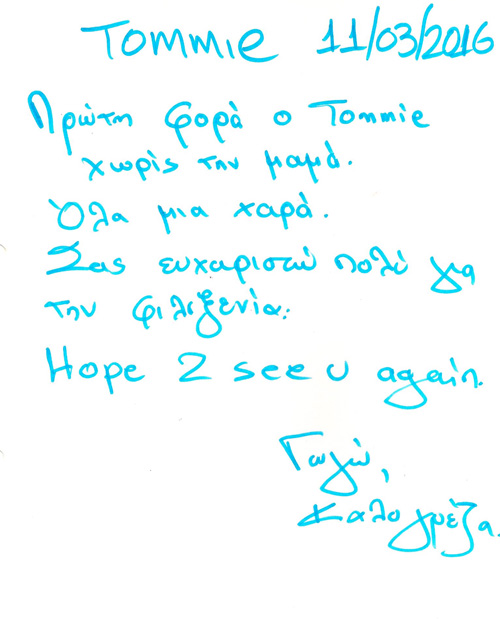 Tommie 11/03/2016
Πρώτη φορά ο Tommie
χωρίς την μαμά.
Όλα μια χαρά.
Σας ευχαριστώ πολύ για
την φιλοξενία.
Hope 2 see u again.
Γωγώ,
Καλογρέζα.